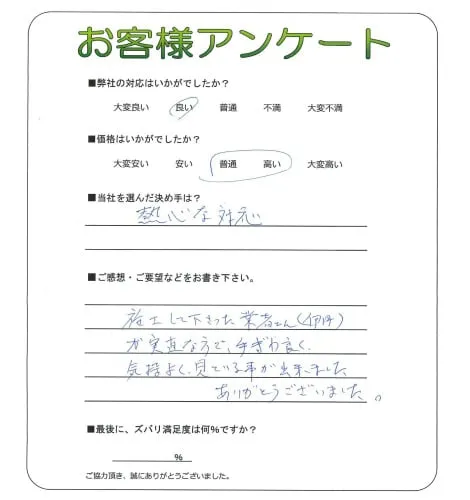 お客様アンケート
■弊社の対応はいかがでしたか？
大変良い 良い 普通 不満 大変不満
■価格はいかがでしたか？
大変安い 安い 普通 高い 大変高い
■当社を選んだ決め手は？
熱心な対応
■ご感想・ご要望などをお書き下さい。
施工して下さった業者さん
が実直な方で、手ぎわ良く、
気持よく、見ている事が出来ました
ありがとうございました。
■最後に、ズバリ満足度は何%ですか？
%
ご協力頂き、誠にありがとうございました。